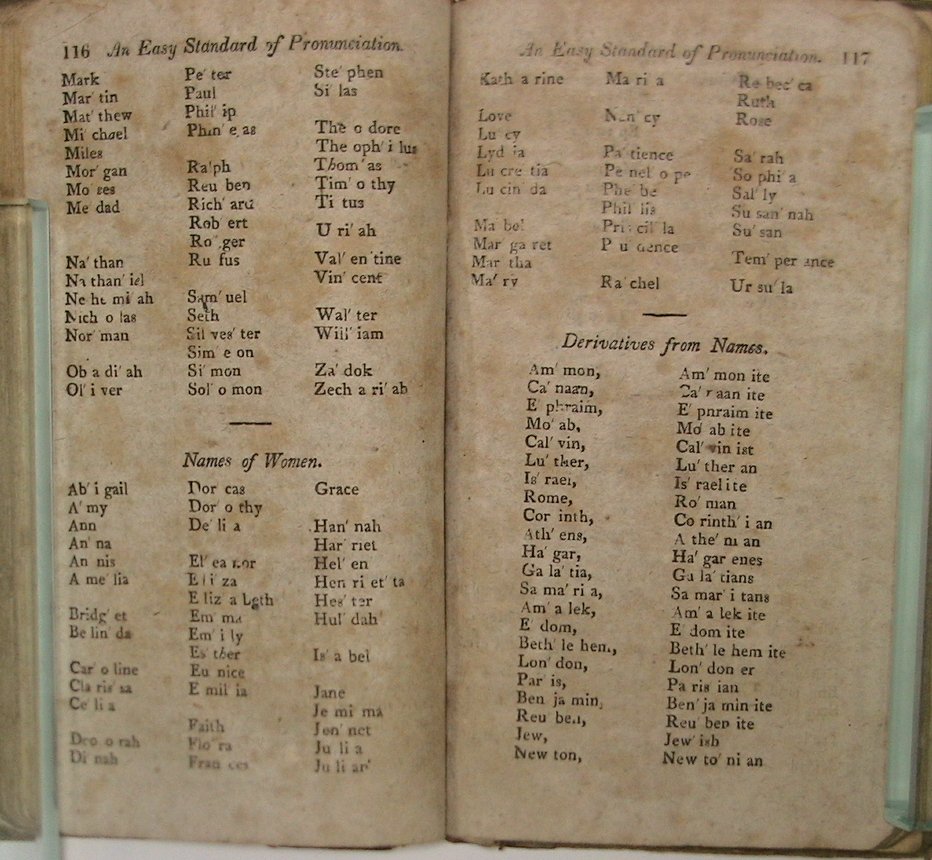 116 An Easy Standard of Pronunciation.
Mark
Mar' tin
Mat' thew
Mi chael
Miles
Mor' gan
Mo ses
Me dad
Na' than
Na than' iel
Ne he mi' ah
Nich o las
Nor' man
Ob a di' ah
Ol' i ver
Pe' ter
Paul
Phil' ip
Phin' e as
Ralph
Reu ben
Rich' ard
Rob' ert
Ro' ger
Ru fus
Sam' uel
Seth
Sil ves' ter
Sim' e on
Si' mon
Sol' o mon
Ste' phen
Si' las
The o dore
The oph' i lus
Thom' as
Tim' o thy
Ti tus
U ri' ah
Val' en tine
Vin' cent
Wal' ter
Will' iam
Za' dok
Zech a ri' ah
Names of Women.
Ab' i gail
A' my
Ann
An' na
An nis
A me' lia
Bridg' et
Be lin' da
Car' o line
Cla ris' sa
Ce' li a
Deb' o rah
Di' nah
Dor cas
Dor' o thy
De' li a
El' ea nor
E li' za
E liz' a beth
Em' ma
Em' i ly
Es' ther
Eu nice
E mil' ia
Faith
Flo' ra
Fran' ces
Grace
Han' nah
Har' riet
Hel' en
Hen ri et' ta
Hes' ter
Hul' dah
Is' a bel
Jane
Je mi' ma
Jen' net
Ju' li a
Ju li an'
An Easy Standard of Pronunciation. 117
Kath' a rine
Love
Lu' cy
Lyd' ia
Lu cre' tia
Lu cin' da
Ma' bel
Mar' ga ret
Mar' tha
Ma' ry
Ma ri' a
Nan' cy
Pa' tience
Pe nel' o pe
Phe' be
Phil' lis
Pris cil' la
Pru' dence
Ra' chel
Re bec' ca
Ruth
Rose
Sa' rah
So phi' a
Sal' ly
Su san' nah
Su' san
Tem' per ance
Ur su' la
Derivatives from Names.
Am' mon, Am' mon ite
Ca' naan, Ca' naan ite
E' phraim, E' phraim ite
Mo' ab, Mo' ab ite
Cal' vin, Cal' vin ist
Lu' ther, Lu' ther an
Is' rael, Is' rael ite
Rome, Ro' man
Cor' inth, Co rinth' i an
Ath' ens, A the' ni an
Ha' gar, Ha' gar enes
Ga la' tia, Ga la' tians
Sa ma' ri a, Sa mar' i tans
Am' a lek, Am' a lek ite
E' dom, E' dom ite
Beth' le hem, Beth' le hem ite
Lon' don, Lon' don er
Par' is, Pa ris' ian
Ben' ja min, Ben' ja min ite
Reu' ben, Reu' ben ite
Jew, Jew' ish
New' ton, New to' ni an